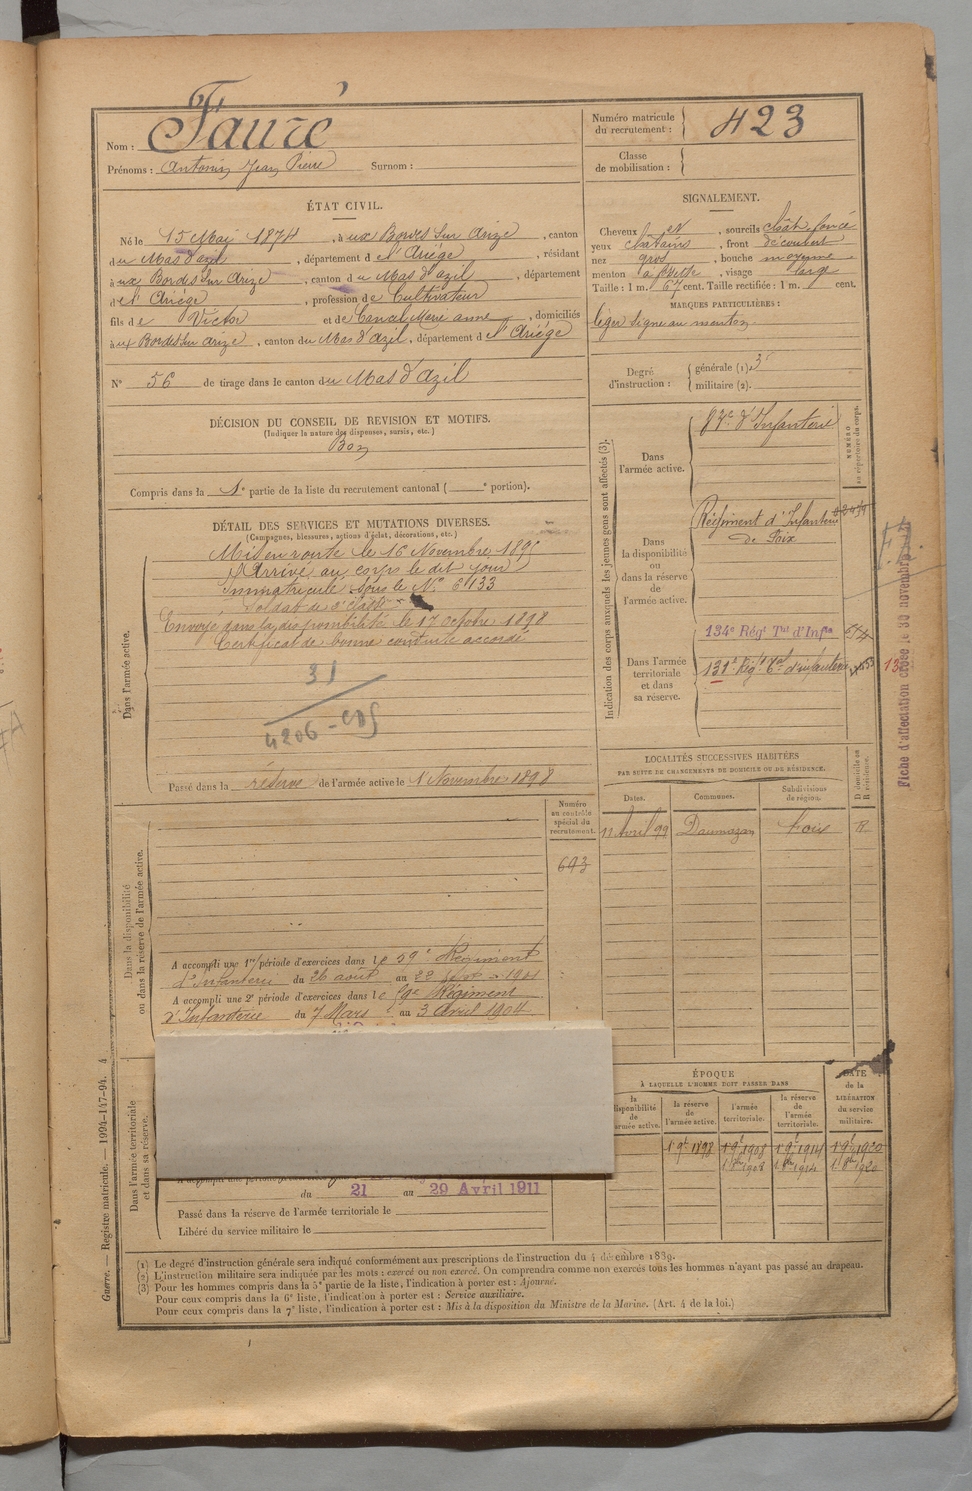 Nom : Fauré
Prénoms : Antonin Jean Pierre Surnom :
Numéro matricule du recrutement : 423
Classe de mobilisation :
ÉTAT CIVIL.
Né le 15 Mai 1874, à ux Bordes sur Arize, canton
du Mas d'azil, département de l'Ariège, résidant
à ux Bordes sur Arize, canton du Mas d'azil, département
de l'Ariège, profession de Cultivateur
fils de Victor et de Cancel Marie anne, domiciliés
à ux Bordes sur arize, canton du Mas d'azil, département de l'Ariège
N° 56 de tirage dans le canton du Mas d'azil
SIGNALEMENT.
Cheveux et, sourcils chât. foncé
yeux chatains, front découvert
nez gros, bouche moyenne
menton à fossette, visage large
Taille : 1 m. 67 cent. Taille rectifiée : 1 m. cent.
MARQUES PARTICULIÈRES :
léger signe au menton
Degré d'instruction : générale (1). 3
militaire (2).
DÉCISION DU CONSEIL DE REVISION ET MOTIFS.
(Indiquer la nature des dispenses, sursis, etc.)
Bon
Compris dans la 1e partie de la liste du recrutement cantonal ( e portion).
DÉTAIL DES SERVICES ET MUTATIONS DIVERSES.
(Campagnes, blessures, actions d'éclat, décorations, etc.)
Dans l'armée active.
Mis en route le 16 Novembre 1895
Arrivé au corps le dit jour
Immatriculé sous le N° 6133
Soldat de 2e classe
Envoyé dans la disponibilité le 17 octobre 1898
Certificat de bonne conduite accordé
31
4206
Passé dans la réserve de l'armée active le 1 Novembre 1898
Indication des corps auxquels les jeunes gens sont affectés (3).
NUMÉRO au répertoire du corps.
Dans l'armée active.
d'Infanterie
Dans la disponibilité ou dans la réserve de l'armée active.
Régiment d'Infanterie
de Foix
Dans l'armée territoriale et dans sa réserve.
134e Régt Tal d'Infie
131e Régt Tal d'infanterie
Fiche d'affectation créée le 30 novembre
LOCALITÉS SUCCESSIVES HABITÉES
PAR SUITE DE CHANGEMENTS DE DOMICILE OU DE RÉSIDENCE.
Dates. Communes. Subdivisions de région. D domicile ou R résidence.
11 Avril 99 Daumazan Foix R
Numéro au contrôle spécial du recrutement.
693
Dans la disponibilité ou dans la réserve de l'armée active.
A accompli une 1re période d'exercices dans le 59e Régiment
d'Infanterie du 26 août au 22 Sept 1901
A accompli une 2e période d'exercices dans le 59e Régiment
d'Infanterie du 7 Mars au 3 Avril 1904
Dans l'armée territoriale et dans sa réserve.
du 21 au 29 Avril 1911
Passé dans la réserve de l'armée territoriale le
Libéré du service militaire le
ÉPOQUE
À LAQUELLE L'HOMME DOIT PASSER DANS
DATE de la LIBÉRATION du service militaire.
la disponibilité de l'armée active.
la réserve de l'armée active.
l'armée territoriale.
la réserve de l'armée territoriale.
1 9bre 1898 1 9bre 1908 1 9bre 1914 1 9bre 1920
1 8bre 1908 1 8bre 1914 1 8bre 1920
(1) Le degré d'instruction générale sera indiqué conformément aux prescriptions de l'instruction du 4 décembre 1889.
(2) L'instruction militaire sera indiquée par les mots : exercé ou non exercé. On comprendra comme non exercés tous les hommes n'ayant pas passé au drapeau.
(3) Pour les hommes compris dans la 5e partie de la liste, l'indication à porter est : Ajourné.
Pour ceux compris dans la 6e liste, l'indication à porter est : Service auxiliaire.
Pour ceux compris dans la 7e liste, l'indication à porter est : Mis à la disposition du Ministre de la Marine. (Art. 4 de la loi.)
Guerre. — Registre matricule. — 1994-147-94. 4